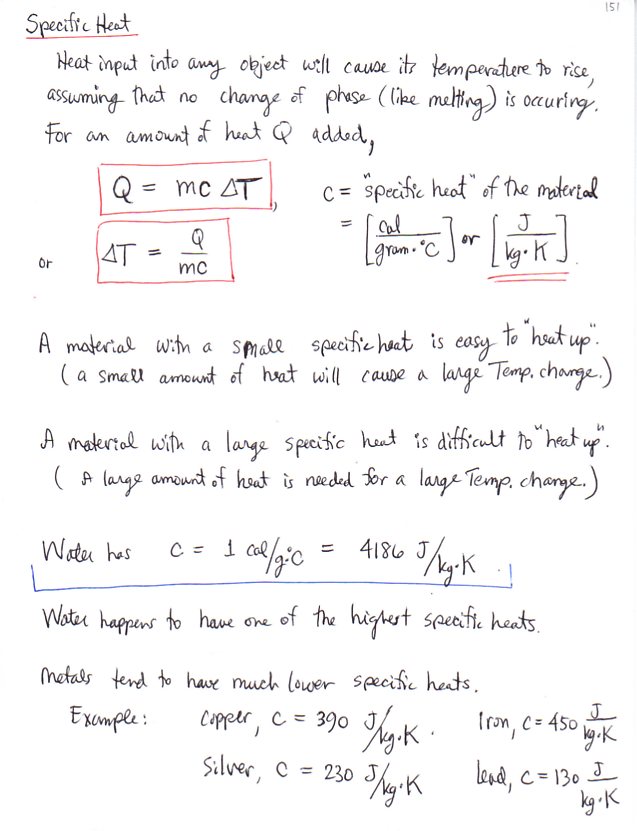 151
Specific Heat
Heat input into any object will cause its temperature to rise,
assuming that no change of phase (like melting) is occuring.
For an amount of heat Q added,
Q = mc ΔT , c = "specific heat" of the material
= [cal / gram·°C] or [J / kg·K].
or ΔT = Q / mc
A material with a small specific heat is easy to "heat up".
( a small amount of heat will cause a large Temp. change.)
A material with a large specific heat is difficult to "heat up".
( A large amount of heat is needed for a large Temp. change.)
Water has c = 1 cal/g·°C = 4186 J/kg·K .
Water happens to have one of the highest specific heats.
Metals tend to have much lower specific heats.
Example: Copper, c = 390 J/kg·K . Iron, c = 450 J/kg·K
Silver, c = 230 J/kg·K lead, c = 130 J/kg·K